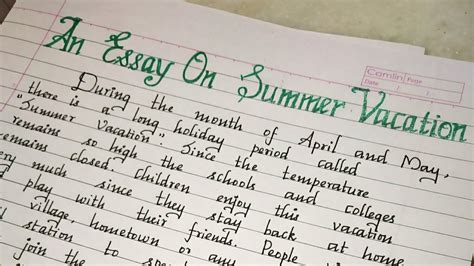 An Essay On Summer Vacation
Camlin Page
Date / /
During the month of April and May,
there is a long holiday period called
"Summer Vacation". Since the temperature
remains so high the schools and colleges
remains closed. children enjoy this vacation
very much since they stay back at home
play with their friends. People
village, hometown or any
station to
join the